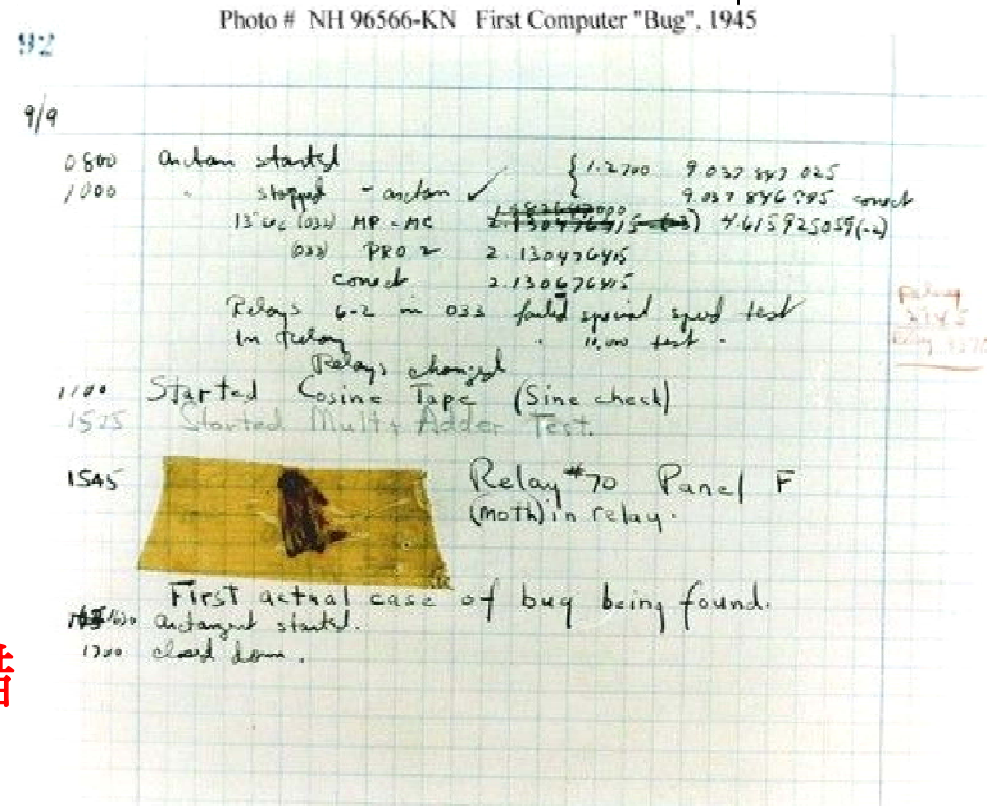 Photo # NH 96566-KN First Computer "Bug", 1945
92
9/9
0800 antan started
1000 " stopped - antan ✓ { 1.2700 9.037 847 025
9.037 846 995 correct
13"uc (032) MP - MC 4.615925059(-2)
(033) PRO 2 2.130476415
correct 2.130676415
Relays 6-2 in 033 failed special speed test
In Relay " 11,000 test .
Relays changed
1100 Started Cosine Tape (Sine check)
1525 Started Mult + Adder Test.
1545 Relay #70 Panel F
(Moth) in relay.
First actual case of bug being found.
1630 antangent started.
1700 closed down.
Relay
2145
Relay 3370